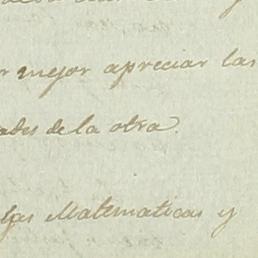 r mejor apreciar las
ades de la obra.
las Matematicas y